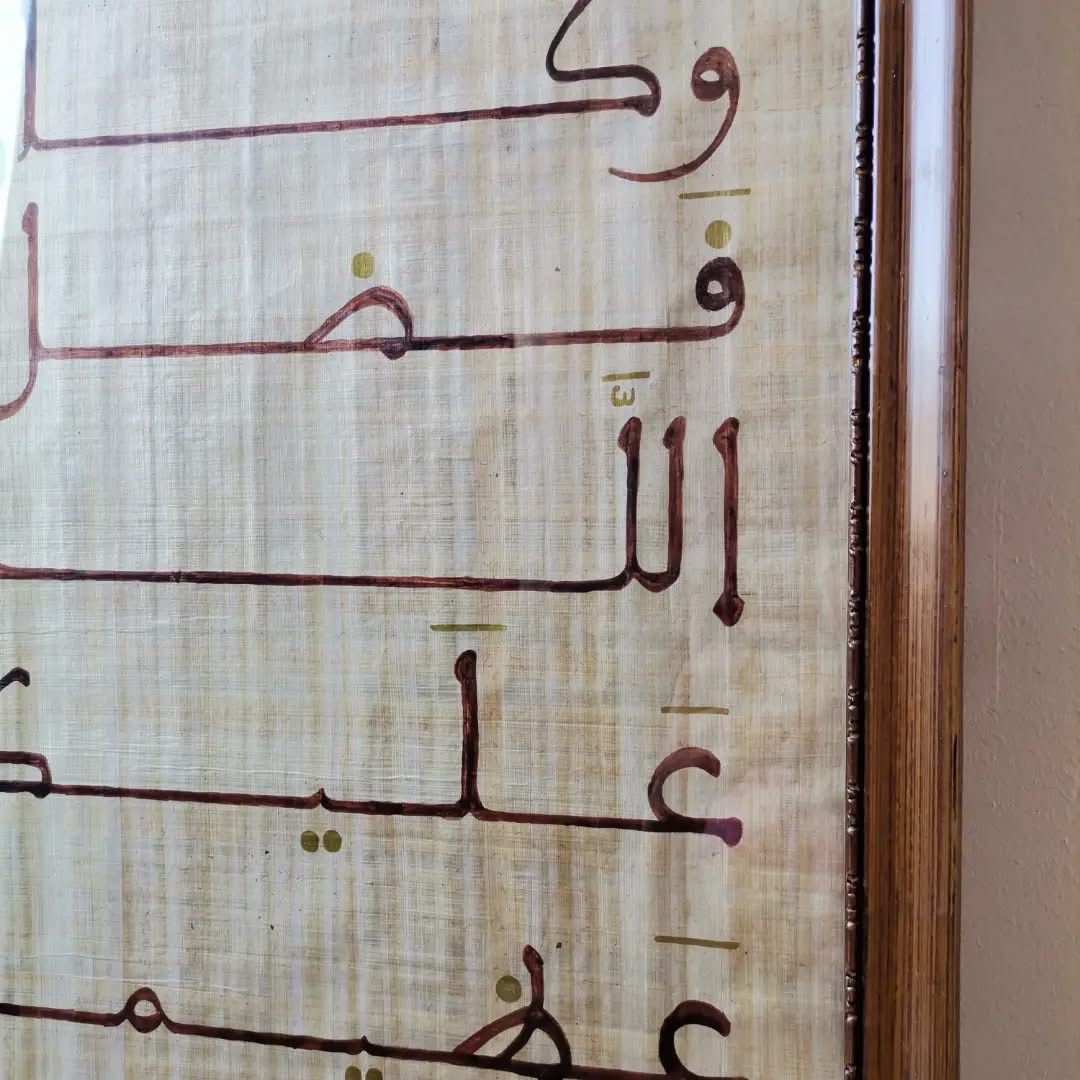 وكا
فَضل
اللَّ
عَلَيك
عَظيم